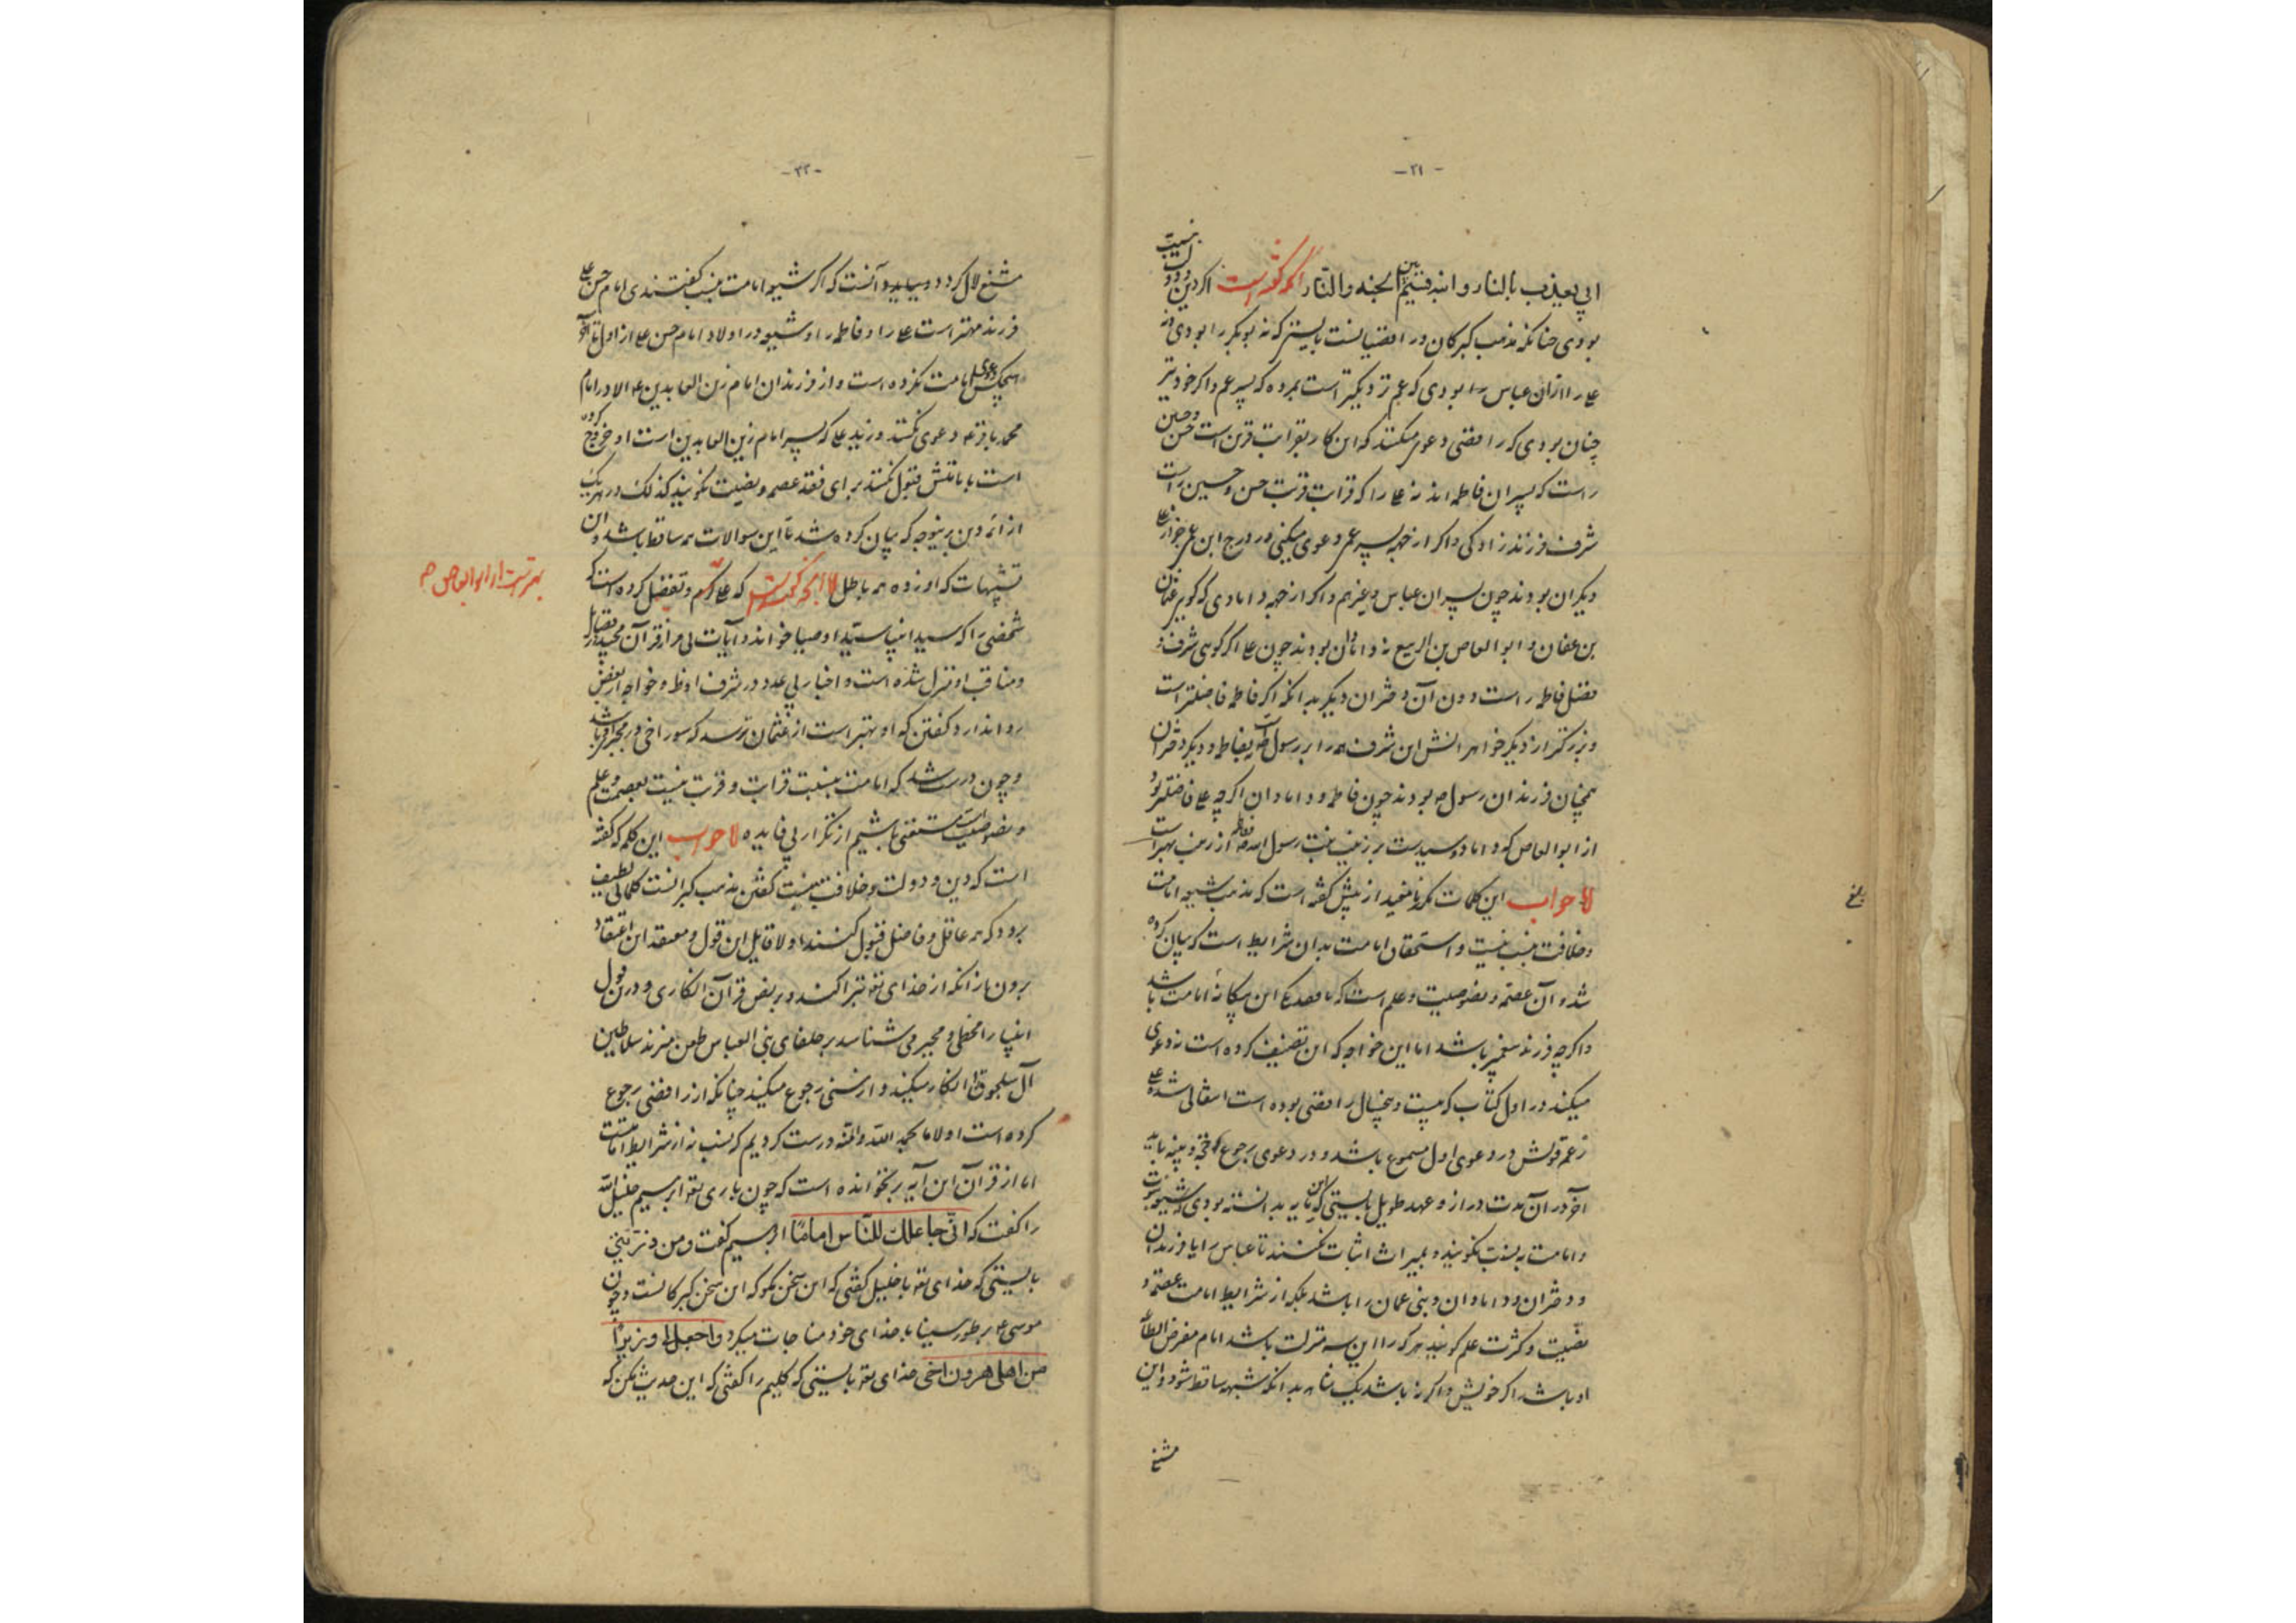 -۲۱-
ابی یعذب بالنار و انه قسیم بین الجنه والنار آنکه گفته است اگر دین و دولت بنسبت
بودی چنانکه مذهب کبرکان و رافضیانست بایستی که نه بوبکر را بودی و نه
علی را ازان عباس را بودی که عم نزدیکتر است بمرده که پسر عم و اگر خود نیز
چنان بودی که رافضی دعوی میکند که این کار بقرابت قربن است حسن و حسین
راست که پسران فاطمه اند نه علی را که قرابت قربت حسن و حسین راست
شرف فرزند زادکی و اگر از جهه پسر عمی دعوی میکنی در درج ابن عم جز از علی
دیکران بودند چون پسران عباس و غیرهم و اگر از جهه دامادی که کویی عثمان
بن عفان و ابو العاص بن الربیع نه دامادان بودند چون علی اگر کویی شرف و
فضل فاطمه راست دون آن دختران دیکر بدانکه اگر فاطمه فاضلتر است
و بزرکتر از دیکر خواهرانش این شرف همه را بر رسول است نه بفاطمه و دیکر دختران
همچنان فرزندان رسول صه بودند چون فاطمه و دامادان اگرچه علی فاضلتر بود
از ابو العاص که داماد و سیدست بر زینب بنت رسول الله فاطمه از زینب بهتر است
لا جواب این کلمات مکرر نامفید از پیش گفته است که مذهب شیعه امامت
و خلافت بنسب نیست و استحقاق امامت بدان شرایط است که بیان کرده
شد و آن عصمة و نصوصیت و علم است که با فقد یکی این بیکانه امامت باشد
و اگرچه فرزند پیغمبر باشد اما این خواجه که این تصنیف کرده است نه دعوی
میکند در اول کتاب که بیست و پنج سال رافضی بوده است انتقالی شده علی
زعم قولش در دعوی اول مسموع باشد و در دعوی رجوع حجة و بینه باید
آخر در آن مدت دراز و عهد طویل بایستی که این مایه بدانسته بودی که شیعه نبوت
و امامت به نسبت نکویند و بمیراث اثبات نکنند تا عباس را یا فرزندان
و دختران و دامادان و بنی عمان را باشد بلکه از شرایط امامت عصمة و
نصیت و کثرت علم کویند هر که را این سه منزلت باشد امام مفرض الطاعه
او باشد اگر خویش و اگر نه باشد یک بدانکه شبهه ساقط شود و این
مشنع
-۲۲-
مشنع لال کردد و بیاید و آنست که اگر شیعه امامت بنسب گفتندی امام حسن علی
فرزند مهتر است علی را و فاطمه را و شیعه در اولاد امام حسن علی از اول تا آخر
هیچکس دعوی امامت نکرده است و از فرزندان امام زین العابدین ع الا در امام
محمد باقر ع دعوی نکنند و زید علی که پسر امام زین العابدین است او خروج کرده
است بامامتش قبول نکنند برای فقد عصمه و نصیت نکویند کذلک در هر یک
از ائمه دین برینوجه که بیان کرده شد تا این سوالات همه ساقط باشد و ان
تشبیهات که اورده همه باطل لا آنچه گفته است که علی کرم و تفضل کرده است که
شخصی را که سید انبیا سید اوصیا خواند و آیات بی مر از قرآن مجید در فضایل
و مناقب او منزل شده است و اخبار بی عدد در شرف او ظ و خواجه از بغض
روا ندارد گفتن که او بهتر است از عثمان ترسد که سوراخی در مجبری باشد
و چون درست شد که امامت بنسبت قرابت و قربت نیست بعصمت و علم
و نصوصیت است مستغنی باشیم از تکرار بی فایده لا جواب این کلمه که گفته
است که دین و دولت و خلافت بنسبت گفتن مذهب کبرانست کلماتی لطیف
بود که همه عاقل و فاضل قبول کنند اولا قایل این قول و معتقد این اعتقاد
برون ازانکه از خدای تع تبرا کند در بعض قرآن انکاری و درین قول
انبیا را مخطی و مجبر می شناسد بر خلفای بنی العباس طعن میزند سلاطین
آل سلجوق را انکار میکند و از سنی رجوع میکند چنانکه از رافضی رجوع
کرده است اولا ما بحمد الله والمنه درست کردیم که نسب نه از شرایط امامتست
اما از قرآن این آیه برنخوانده است که چون باری تع ابرهیم خلیل الله
را گفت که انی جاعلک للناس اماما ابرهیم گفت ومن ذریتی
بایستی که خدای تع با خلیل گفتی که این سخن مکو که این سخن کبرکانست و چون
موسی ع بر طور سینا با خدای خود مناجات میکرد واجعل لی وزیرا
من اهلی هرون اخی خدای تع بایستی که کلیم را گفتی که این حدیث مکن که
بهترست از ابو العاص صه